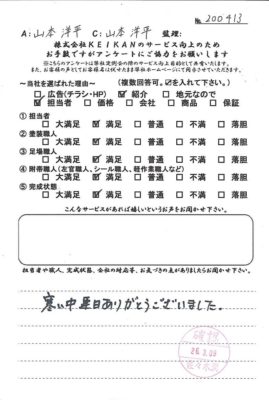 No. 200413
A: 山本 洋平 C: 山本 洋平 監理:
株式会社KEIKANのサービス向上のため
お手数ですがアンケートにご協力をお願いします
～当社を選ばれた理由～ (複数回答可。☑を入れて下さい。)
□ 広告(チラシ・HP) ☑ 紹介 □ 地元なので
☑ 担当者 □ 価格 □ 会社 □ 商品 □ 保証
① 担当者
□ 大満足 ☑ 満足 □ 普通 □ 不満 □ 落胆
② 塗装職人
□ 大満足 ☑ 満足 □ 普通 □ 不満 □ 落胆
③ 足場職人
□ 大満足 ☑ 満足 □ 普通 □ 不満 □ 落胆
④ 付帯職人(左官職人、シール職人、軽作業職人など)
□ 大満足 ☑ 満足 □ 普通 □ 不満 □ 落胆
⑤ 完成状態
□ 大満足 ☑ 満足 □ 普通 □ 不満 □ 落胆
こんなサービスがあれば嬉しいというお声をお聞かせ下さい。
担当者や職人、完成状態、会社の対応等、お気づきの点がありましたらお聞かせ下さい。
寒い中毎日ありがとうございました。
確認
26.3.09
佐々木